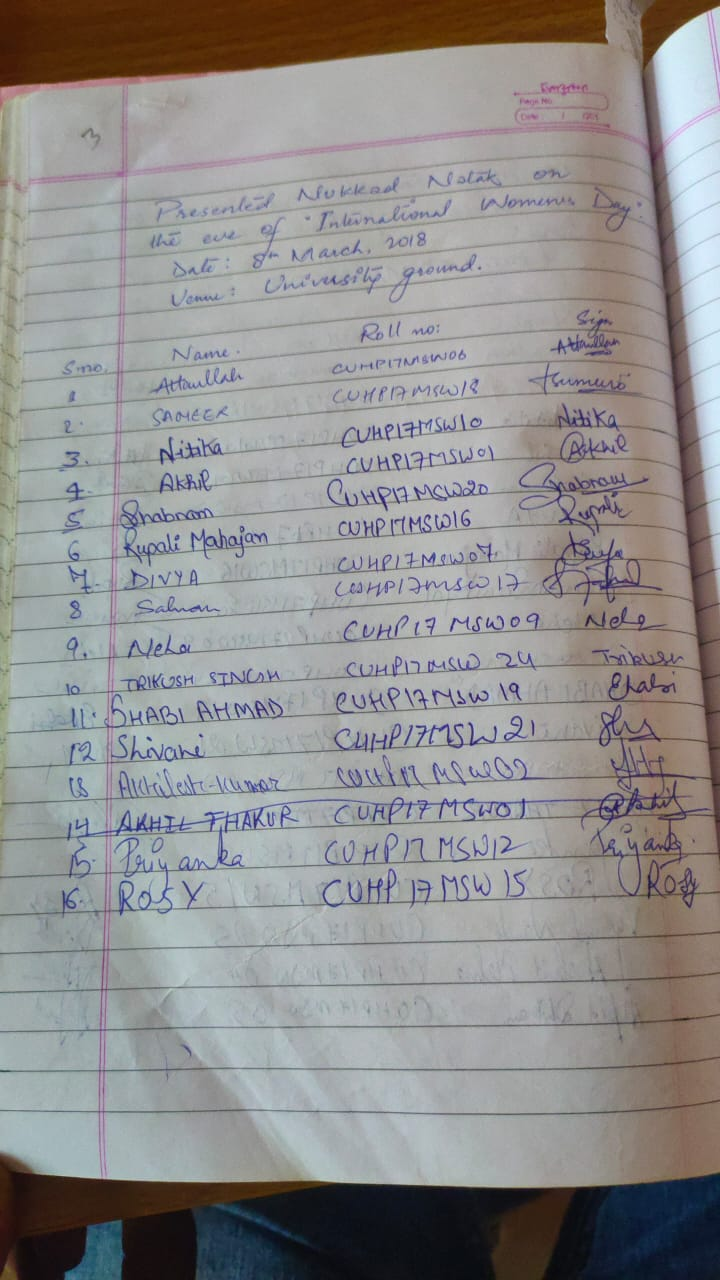 3
Evergreen
Page No.
Date: / /201
Presented Nukkad Natak on
the eve of "International Womens Day".
Date: 8th March, 2018
Venue: University ground.
S.no. Name. Roll no: Sign
1 Attaullah CUHP17MSW06 Attaullah
2. SAMEER CUHP17MSW18
3. Nitika CUHP17MSW10 Nitika
4. Akhil CUHP17MSW01 Akhil
5 Shabnam CUHP17MSW20 Shabnam
6 Rupali Mahajan CUHP17MSW16 Rupali
7. DIVYA CUHP17MSW07 Divya
8 Salman CUHP17MSW17
9. Neha CUHP17MSW09 Neha
10 TRIKUSH SINGH CUHP17MSW 24 Trikush
11. SHABI AHMAD CUHP17MSW19 Shabi
12 Shivani CUHP17MSW21
13 Akhilesh Kumar CUHP17MSW02
14 AKHIL THAKUR CUHP17MSW01 Akhil
15. Priyanka CUHP17MSW12 Priyanka
16. ROSY CUHP17MSW15 Rosy